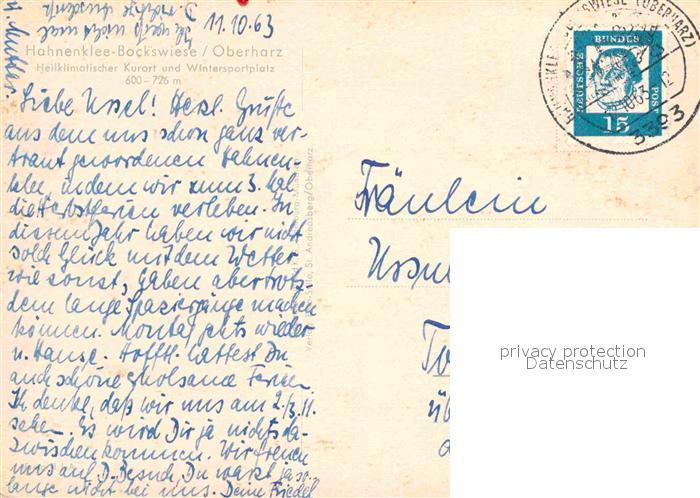 11.10.63
Hahnenklee-Bockswiese / Oberharz
Heilklimatischer Kurort und Wintersportplatz
600-726 m
Liebe Ussel! Herzl. Grüße
aus dem uns schon ganz ver-
traut gewordenen Hahnen-
klee, in dem wir zum 3. Mal
die Herbstferien verleben. In
diesem Jahr haben wir nicht
solch Glück mit dem Wetter
wie sonst, haben aber trotz-
dem lange Spaziergänge machen
können. Montag gehts wieder
n. Hause. Hofftl. hattest Du
auch schöne erholsame Ferien.
Ich denke, daß wir uns am 2./3.11.
sehen. Es wird Dir ja nichts da-
zwischenkommen. Wir freuen
uns auf D. Besuch, Du warst ja so
lange nicht bei uns. Deine Friedel
u. Mutter.
St. Andreasberg/Oberharz
DEUTSCHE
BUNDES
POST
15
BOCKSWIESE (OBERHARZ)
10.63.12
3393
Fräulein
privacy protection
Datenschutz